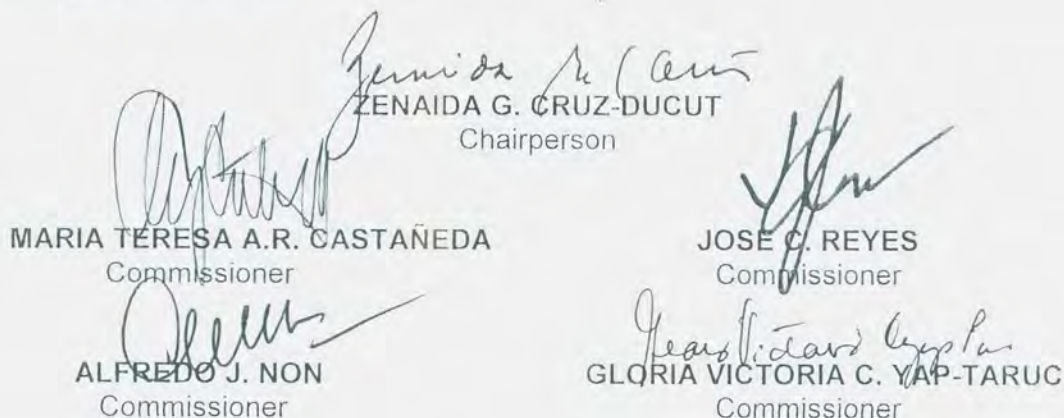 ZENAIDA G. CRUZ-DUCUT
Chairperson
MARIA TERESA A.R. CASTAÑEDA
Commissioner
JOSE C. REYES
Commissioner
ALFREDO J. NON
Commissioner
GLORIA VICTORIA C. YAP-TARUC
Commissioner